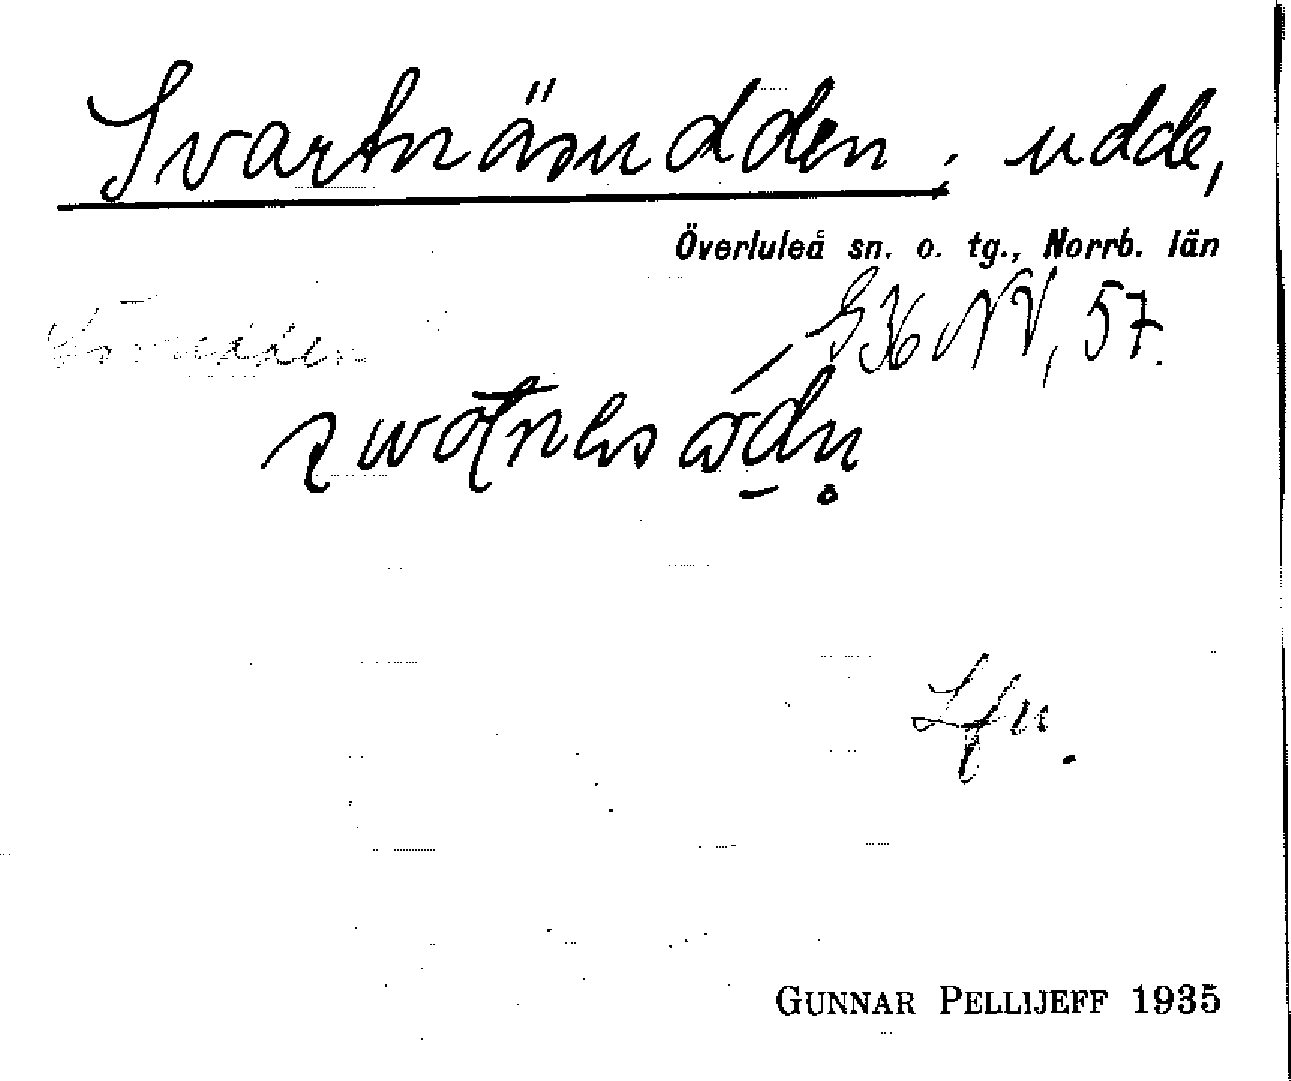 Svartnäsudden. udde,
Överluleå sn. o. tg., Norrb. län
G36NV, 57.
Lfu.
GUNNAR PELLIJEFF 1935